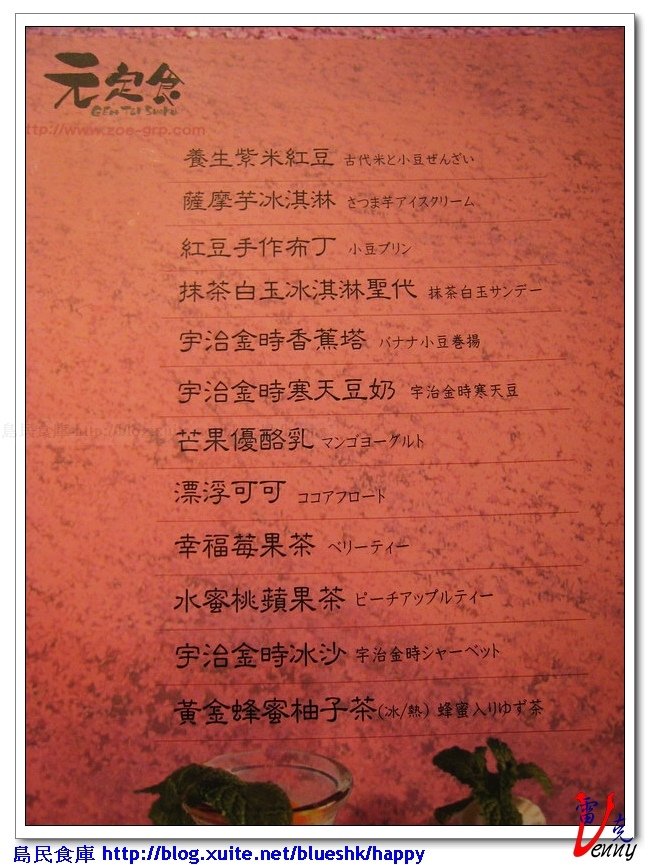 元定食
GEN TEI SHOKU
http://www.zoe-grp.com
養生紫米紅豆 古代米と小豆ぜんざい
薩摩芋冰淇淋 さつま芋アイスクリーム
紅豆手作布丁 小豆プリン
抹茶白玉冰淇淋聖代 抹茶白玉サンデー
宇治金時香蕉塔 バナナ小豆巻揚
宇治金時寒天豆奶 宇治金時寒天豆
芒果優酪乳 マンゴヨーグルト
漂浮可可 ココアフロート
幸福莓果茶 ベリーティー
水蜜桃蘋果茶 ピーチアップルティー
宇治金時冰沙 宇治金時シャーベット
黃金蜂蜜柚子茶(冰/熱) 蜂蜜入りゆず茶
雷克
Venny
島民食庫 http://blog.xuite.net/blueshk/happy